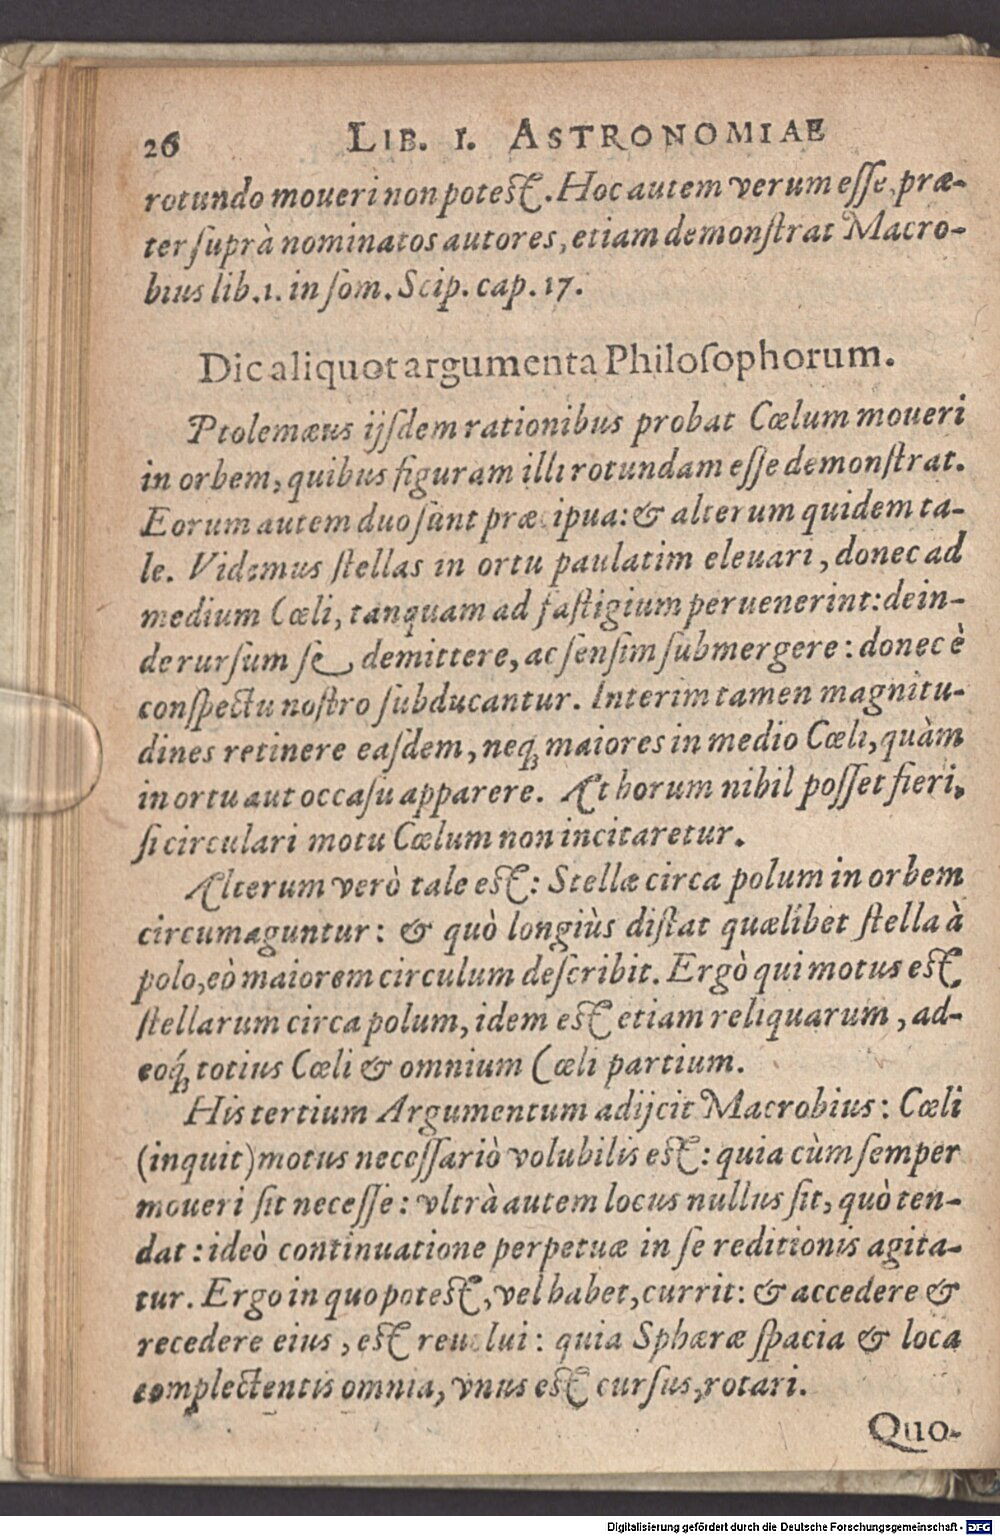 26 LIB. I. ASTRONOMIAE
rotundo moueri non potest. Hoc autem verum esse, præ-
ter suprà nominatos autores, etiam demonstrat Macro-
bius lib. 1. in som. Scip. cap. 17.
Dic aliquot argumenta Philosophorum.
Ptolemæus ijsdem rationibus probat Cœlum moueri
in orbem, quibus figuram illi rotundam esse demonstrat.
Eorum autem duo sunt præcipua: & alterum quidem ta-
le. Videmus stellas in ortu paulatim eleuari, donec ad
medium Cœli, tanquam ad fastigium peruenerint: dein-
de rursum se demittere, ac sensim submergere: donec è
conspectu nostro subducantur. Interim tamen magnitu-
dines retinere easdem, neq; maiores in medio Cœli, quàm
in ortu aut occasu apparere. At horum nihil posset fieri,
si circulari motu Cœlum non incitaretur.
Alterum verò tale est: Stellæ circa polum in orbem
circumaguntur: & quò longiùs distat quælibet stella à
polo, eò maiorem circulum describit. Ergò qui motus est
stellarum circa polum, idem est etiam reliquarum, ad-
eoq́; totius Cœli & omnium Cœli partium.
His tertium Argumentum adijcit Macrobius: Cœli
(inquit) motus necessariò volubilis est: quia cùm semper
moueri sit necesse: vltrà autem locus nullus sit, quò ten-
dat: ideò continuatione perpetuæ in se reditionis agita-
tur. Ergo in quo potest, vel habet, currit: & accedere &
recedere eius, est reuolui: quia Sphæræ spacia & loca
complectentis omnia, vnus est cursus, rotari.
Quo-
Digitalisierung gefördert durch die Deutsche Forschungsgemeinschaft - DFG